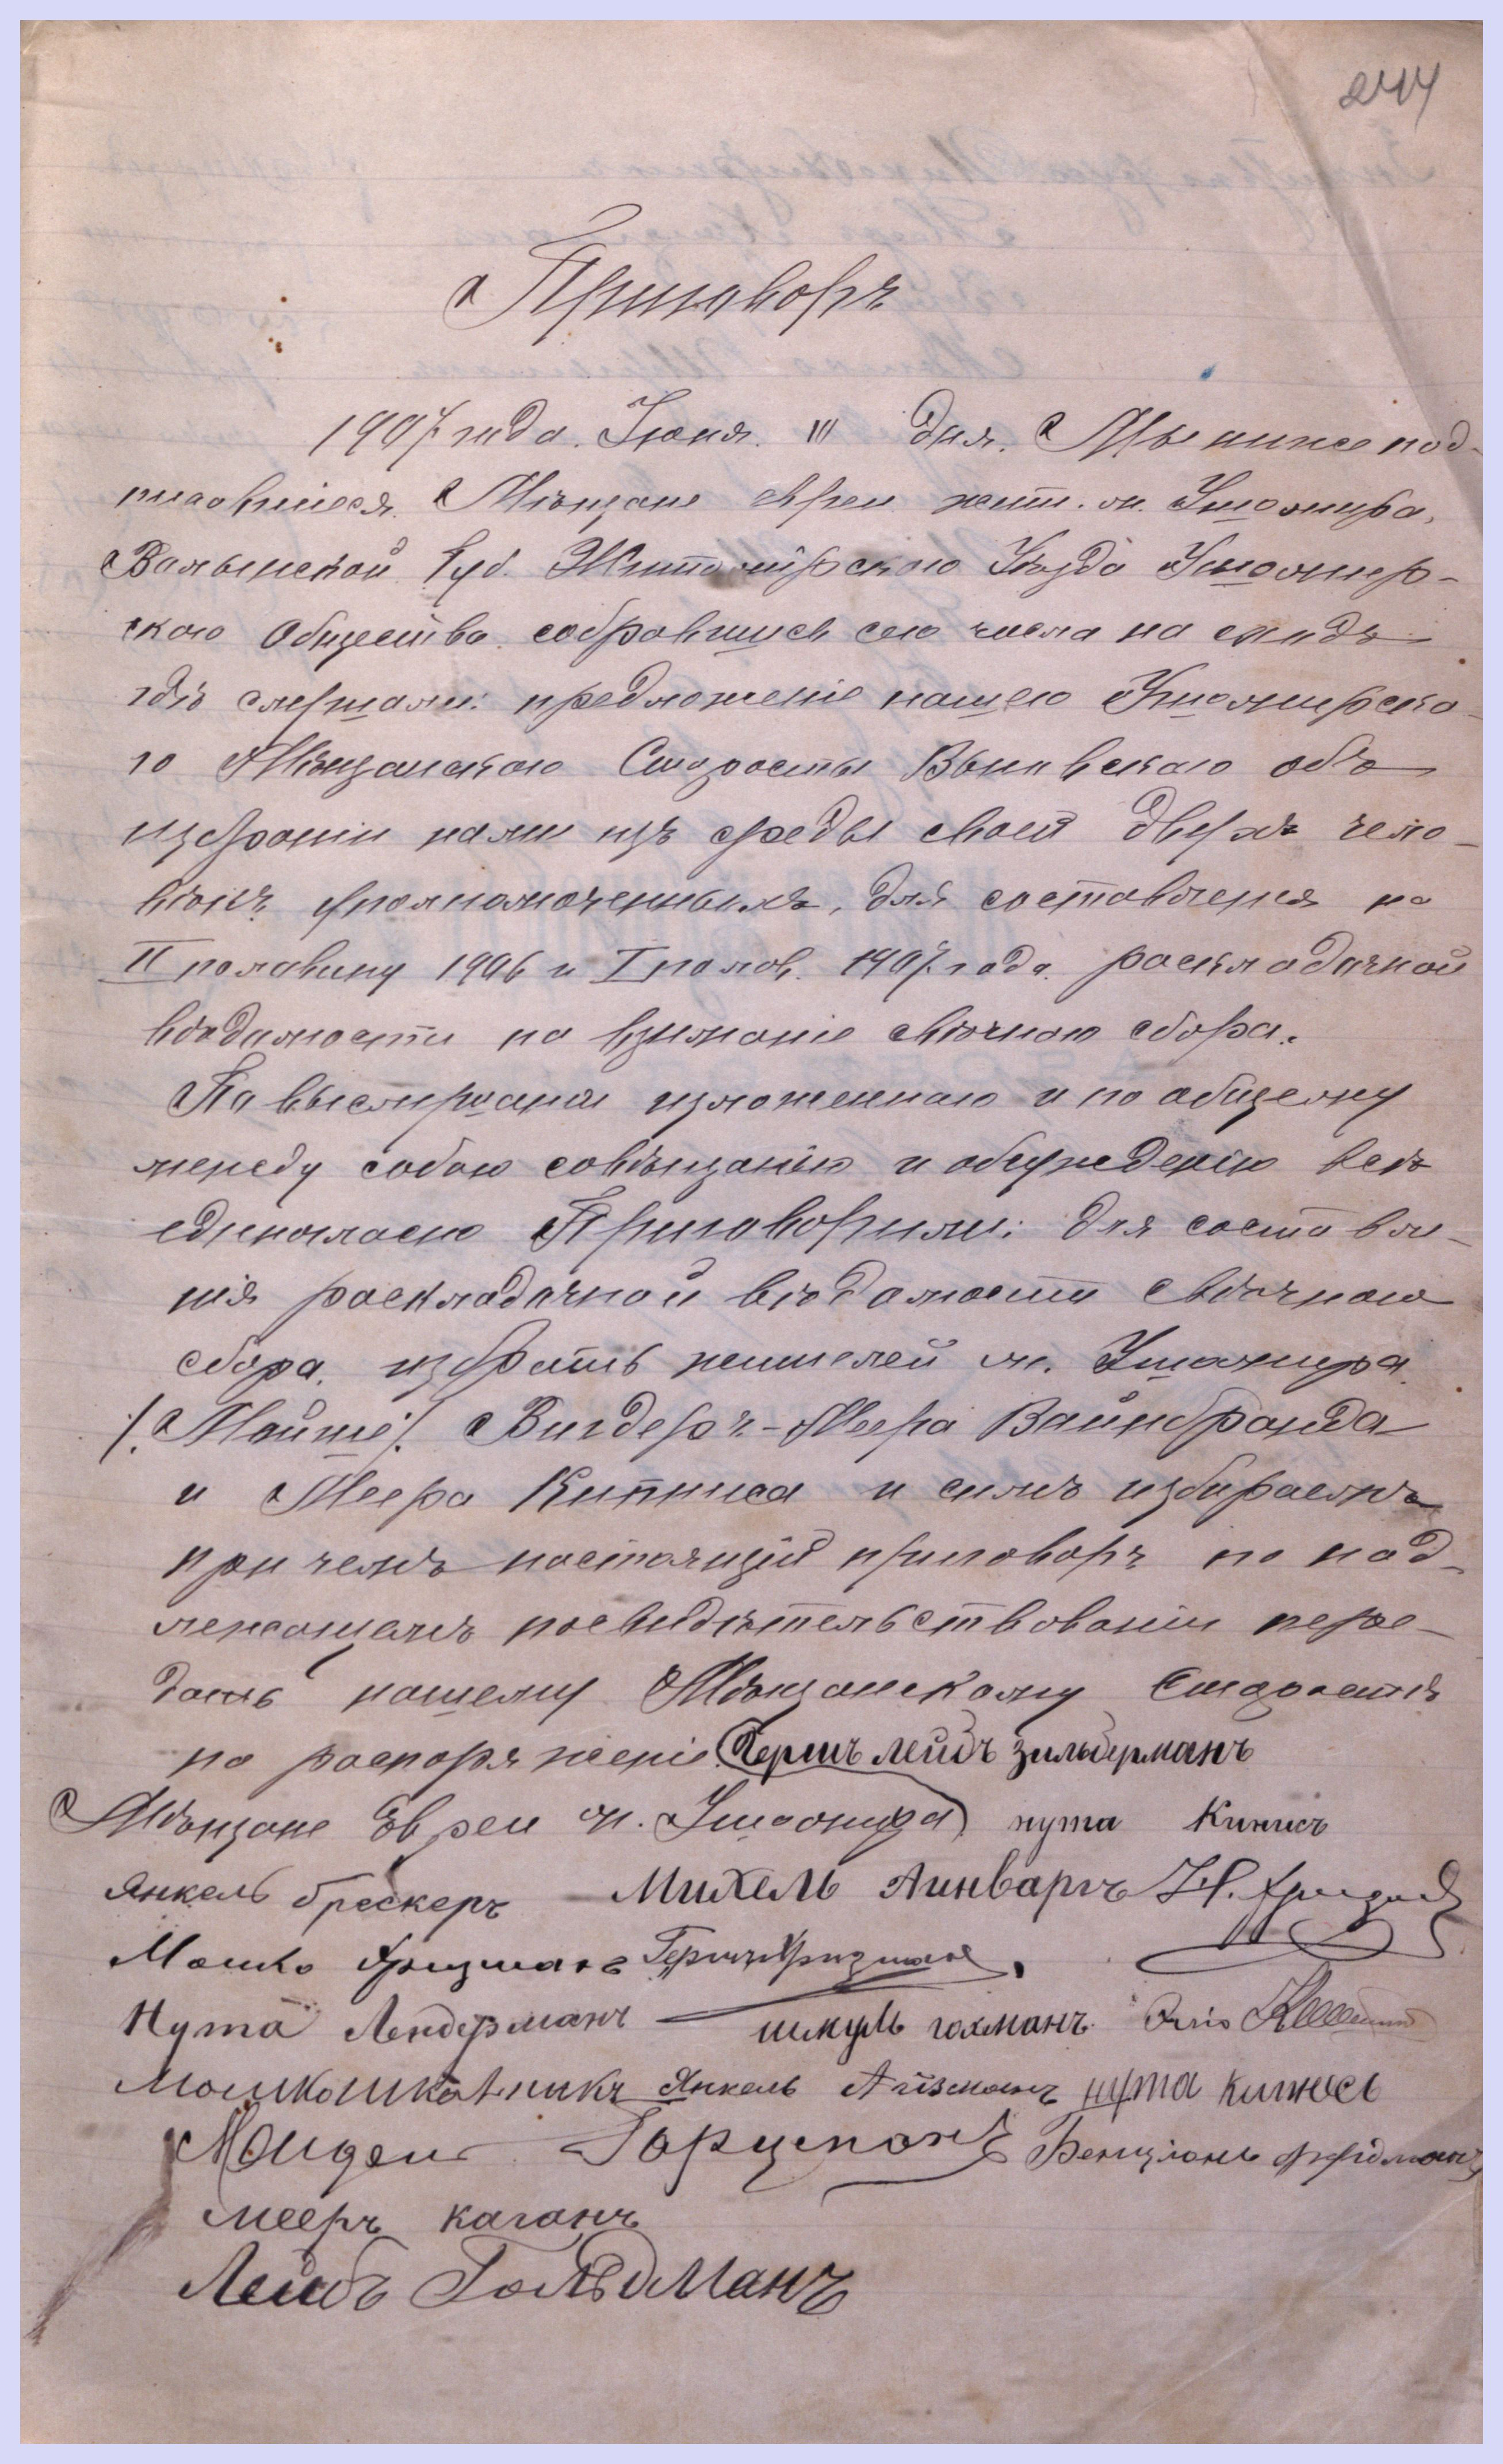 244
Приговоръ
1907 года Іюня III дня. Мы нижепод-
писавшіеся Мѣщане евреи жит. м. Ушомира,
Волынской Губ. Житомірскаго Уѣзда Ушомир-
скаго Общества собравшись сего числа на сходъ
гдѣ слушали: предложеніе нашего Ушомирска-
го Мѣщанскаго Старосты Выговскаго объ
избраніи нами изъ среды своей двухъ чело-
вѣкъ уполномоченныхъ, для составленія на
II половину 1906 и I полов. 1907 года раскладочной
вѣдомости на взиманіе свѣчнаго сбора.
По выслушаніи изложеннаго и по общему
между собою совѣщанію и обсужденію всѣ
единогласно Приговорили: для составле-
нія раскладочной вѣдомости свѣчнаго
сбора избрать жителей м. Ушомира
/. Мойше ./ Вигдеръ-Меера Вайнбранда
и Меера Кипниса и симъ избираемъ
при чемъ настоящій приговоръ по над-
лежащемъ посвидѣтельствованіи пере-
дать нашему Мѣщанскому Старостѣ
по распоряженіе. Гершъ лейбъ зильберманъ
Мѣщане Евреи м. Ушомира нута Кипнисъ
Янкель брескеръ Михель Аинваргъ Н.
Мошко Фризманъ Гершъ Фризманъ
Нута Лендерманъ шмуль гохманъ
Мошко школьникъ Янкель Аизманъ нута кипнесъ
Горцманъ Бенціонъ фридманъ
Мееръ каганъ
Леибъ Гольдманъ